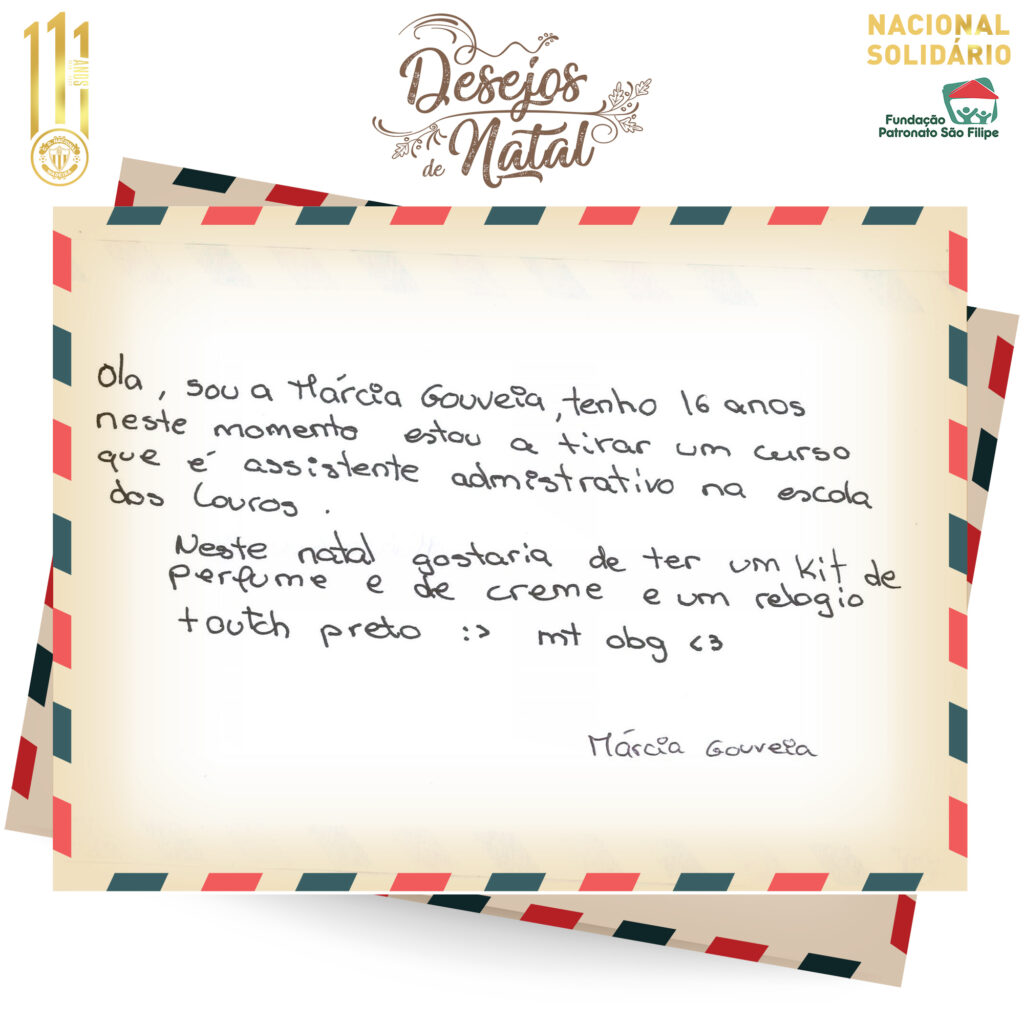 111
ANOS
Desejos
de Natal
NACIONAL
SOLIDÁRIO
Fundação
Patronato São Filipe
Ola, sou a Márcia Gouveia, tenho 16 anos
neste momento estou a tirar um curso
que é assistente admistrativo na escola
dos Louros.
Neste natal gostaria de ter um Kit de
perfume e de creme e um relogio
toutch preto :> mt obg <3
Márcia Gouveia